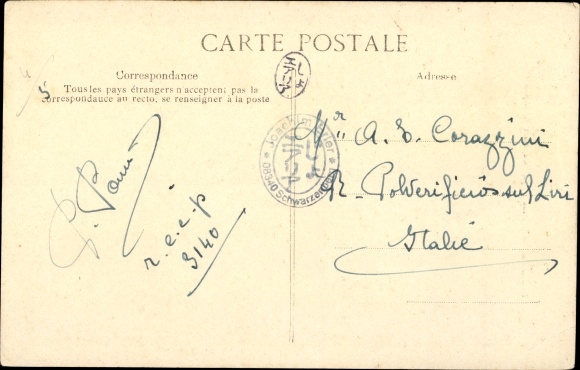 CARTE POSTALE
Correspondance
Tous les pays étrangers n'acceptent pas la
correspondance au recto, se renseigner à la poste
Adresse
5
r.e.e.p
3140
Mr A. E. Corazzini
R- Polverificio sul Liri
Italie
08340 Schwarzenberg